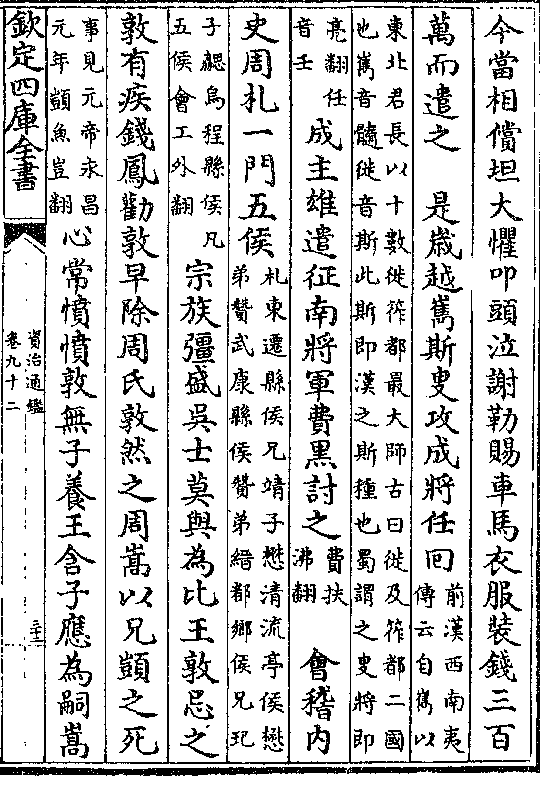 今當相償坦大懼叩頭泣謝勒賜車馬衣服裝錢三百
萬而遣之　是歲越嶲斯叟攻成將任回前漢西南夷傳云自嶲以
東北君長以十數徙筰都最大師古曰徙及筰都二國
也嶲音髓徙音斯此斯即漢之斯種也蜀謂之叟將即
亮翻任音壬　成主雄遣征南將軍費黑討之費扶沸翻　會稽内
史周札一門五侯札東遷縣侯兄靖子懋清流亭侯懋弟贊武康縣侯贊弟縉都鄉侯兄玘
子勰烏程縣侯凡五侯會工外翻　宗族彊盛吳士莫與為比王敦忌之
敦有疾錢鳳勸敦早除周氏敦然之周嵩以兄顗之死
事見元帝永昌元年顗魚豈翻　心常憤憤敦無子養王含子應為嗣嵩
欽定四庫全書
資治通鑑
卷九十二
三十二